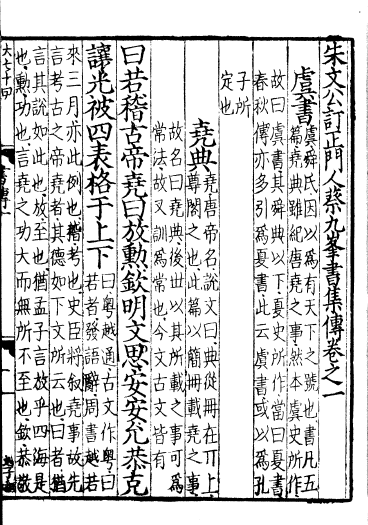 朱文公訂正門人蔡九峯書集傳卷之一
虞書
虞舜氏因以為有天下之號也書凡五
篇堯典雖紀唐堯之事然本虞史所作
故曰虞書其舜典以下夏史所作當曰夏書
春秋傳亦多引為夏書此云虞書或以為孔
子所
定也
堯典
堯唐帝名說文曰典從冊在丌上
尊閣之也此篇以簡冊載堯之事
故名曰堯典後世以其所載之事可為
常法故又訓為常也今文古文皆有
曰若稽古帝堯曰放勲欽明文思安安允恭克
讓光被四表格于上下
曰粵越通古文作粵曰
若者發語辭周書越若
來三月亦此例也稽考也史臣將叙堯事故先
言考古之帝堯者其德如下文所云也曰者猶
言其說如此也放至也猶孟子言放乎四海是
也勲功也言堯之功大而無所不至也欽恭敬
大七十四
書傳一